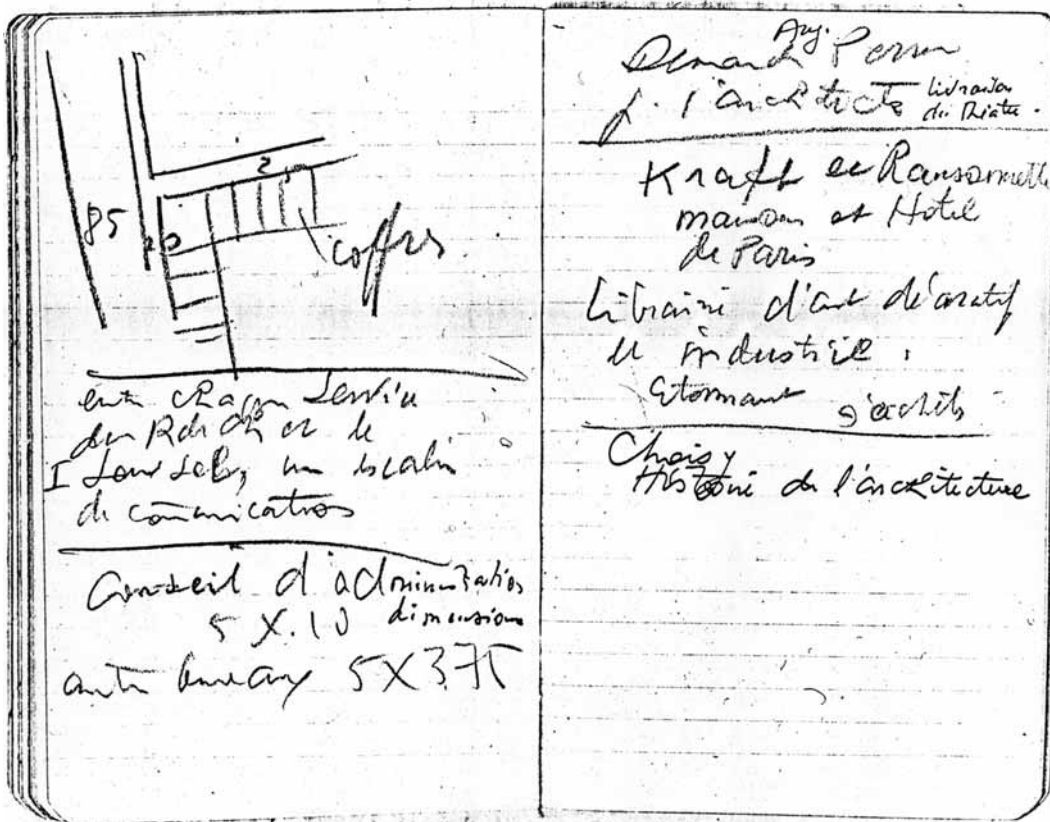 2
85
20
coffres
entre chaque service
du R de Ch et le
I sour sol, un escalier
de communication
Conseil d'administration
5 X 10 dimensions
autre bureaux 5 X 3.75
Aug.
Demander Perret
l'architecte librairie
du Théâtre.
Kraft et Ransonnette
maison et Hotel
de Paris
Librairie d'art décoratif
et industriel.
Etonnant
Choisy
Histoire de l'architecture